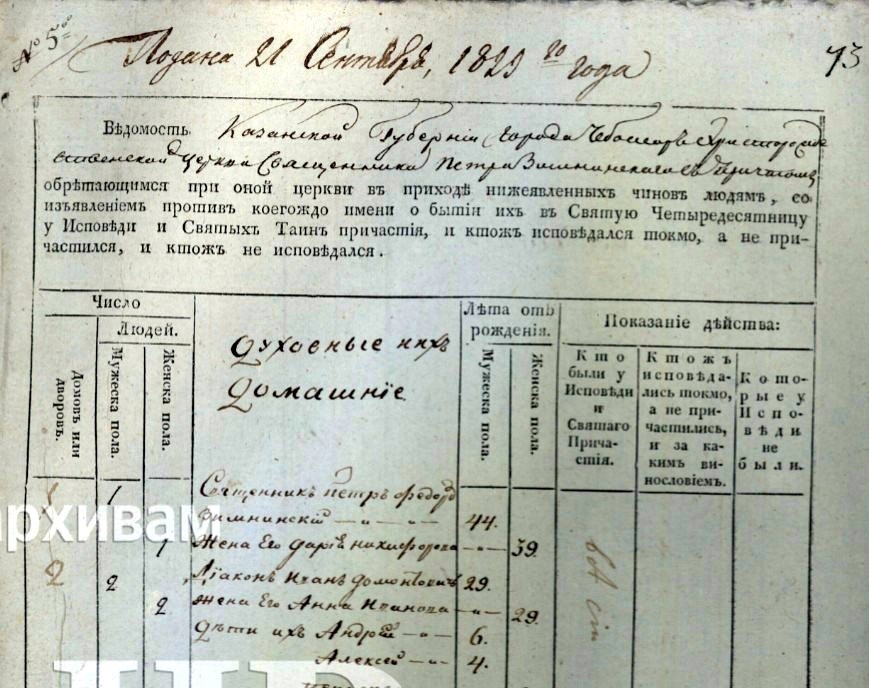 № 5
Подана 21 Сентября, 1829 го года
73
Вѣдомость Казанской Губерніи города Чебоксаръ Христорожде
ственской церкви Священника Петра Зимнинскаго съ причтомъ
обрѣтающимся при оной церкви въ приходѣ нижеявленныхъ чиновъ людямъ, со
изъявленіемъ противъ коегождо имени о бытіи ихъ въ Святую Четыредесятницу
у Исповѣди и Святыхъ Таинъ причастія, и ктожъ исповѣдался токмо, а не при-
частился, и ктожъ не исповѣдался.
Число
Людей.
Домовъ или дворовъ.
Мужеска пола.
Женска пола.
Духовные и ихъ
Домашніе
Лѣта отъ
рожденія.
Мужеска пола.
Женска пола.
Показаніе дѣйства:
Кто
были у
Исповѣди
и
Святаго
Прича-
стія.
Ктожъ
исповѣда-
лись токмо,
а не при-
частились,
и за ка-
кимъ ви-
нословіемъ.
Кото-
рые у
Испо-
вѣди
не
были.
1 1 Священникъ Петръ Федоровъ
Зимнинскій 44.
1 Жена Его Дарія Никифорова 39.
2 2 Діаконъ Иванъ 29.
2 Жена Его Анна Иванова 29.
Дѣти ихъ Андрей 6.
Алексей 4.
архивам